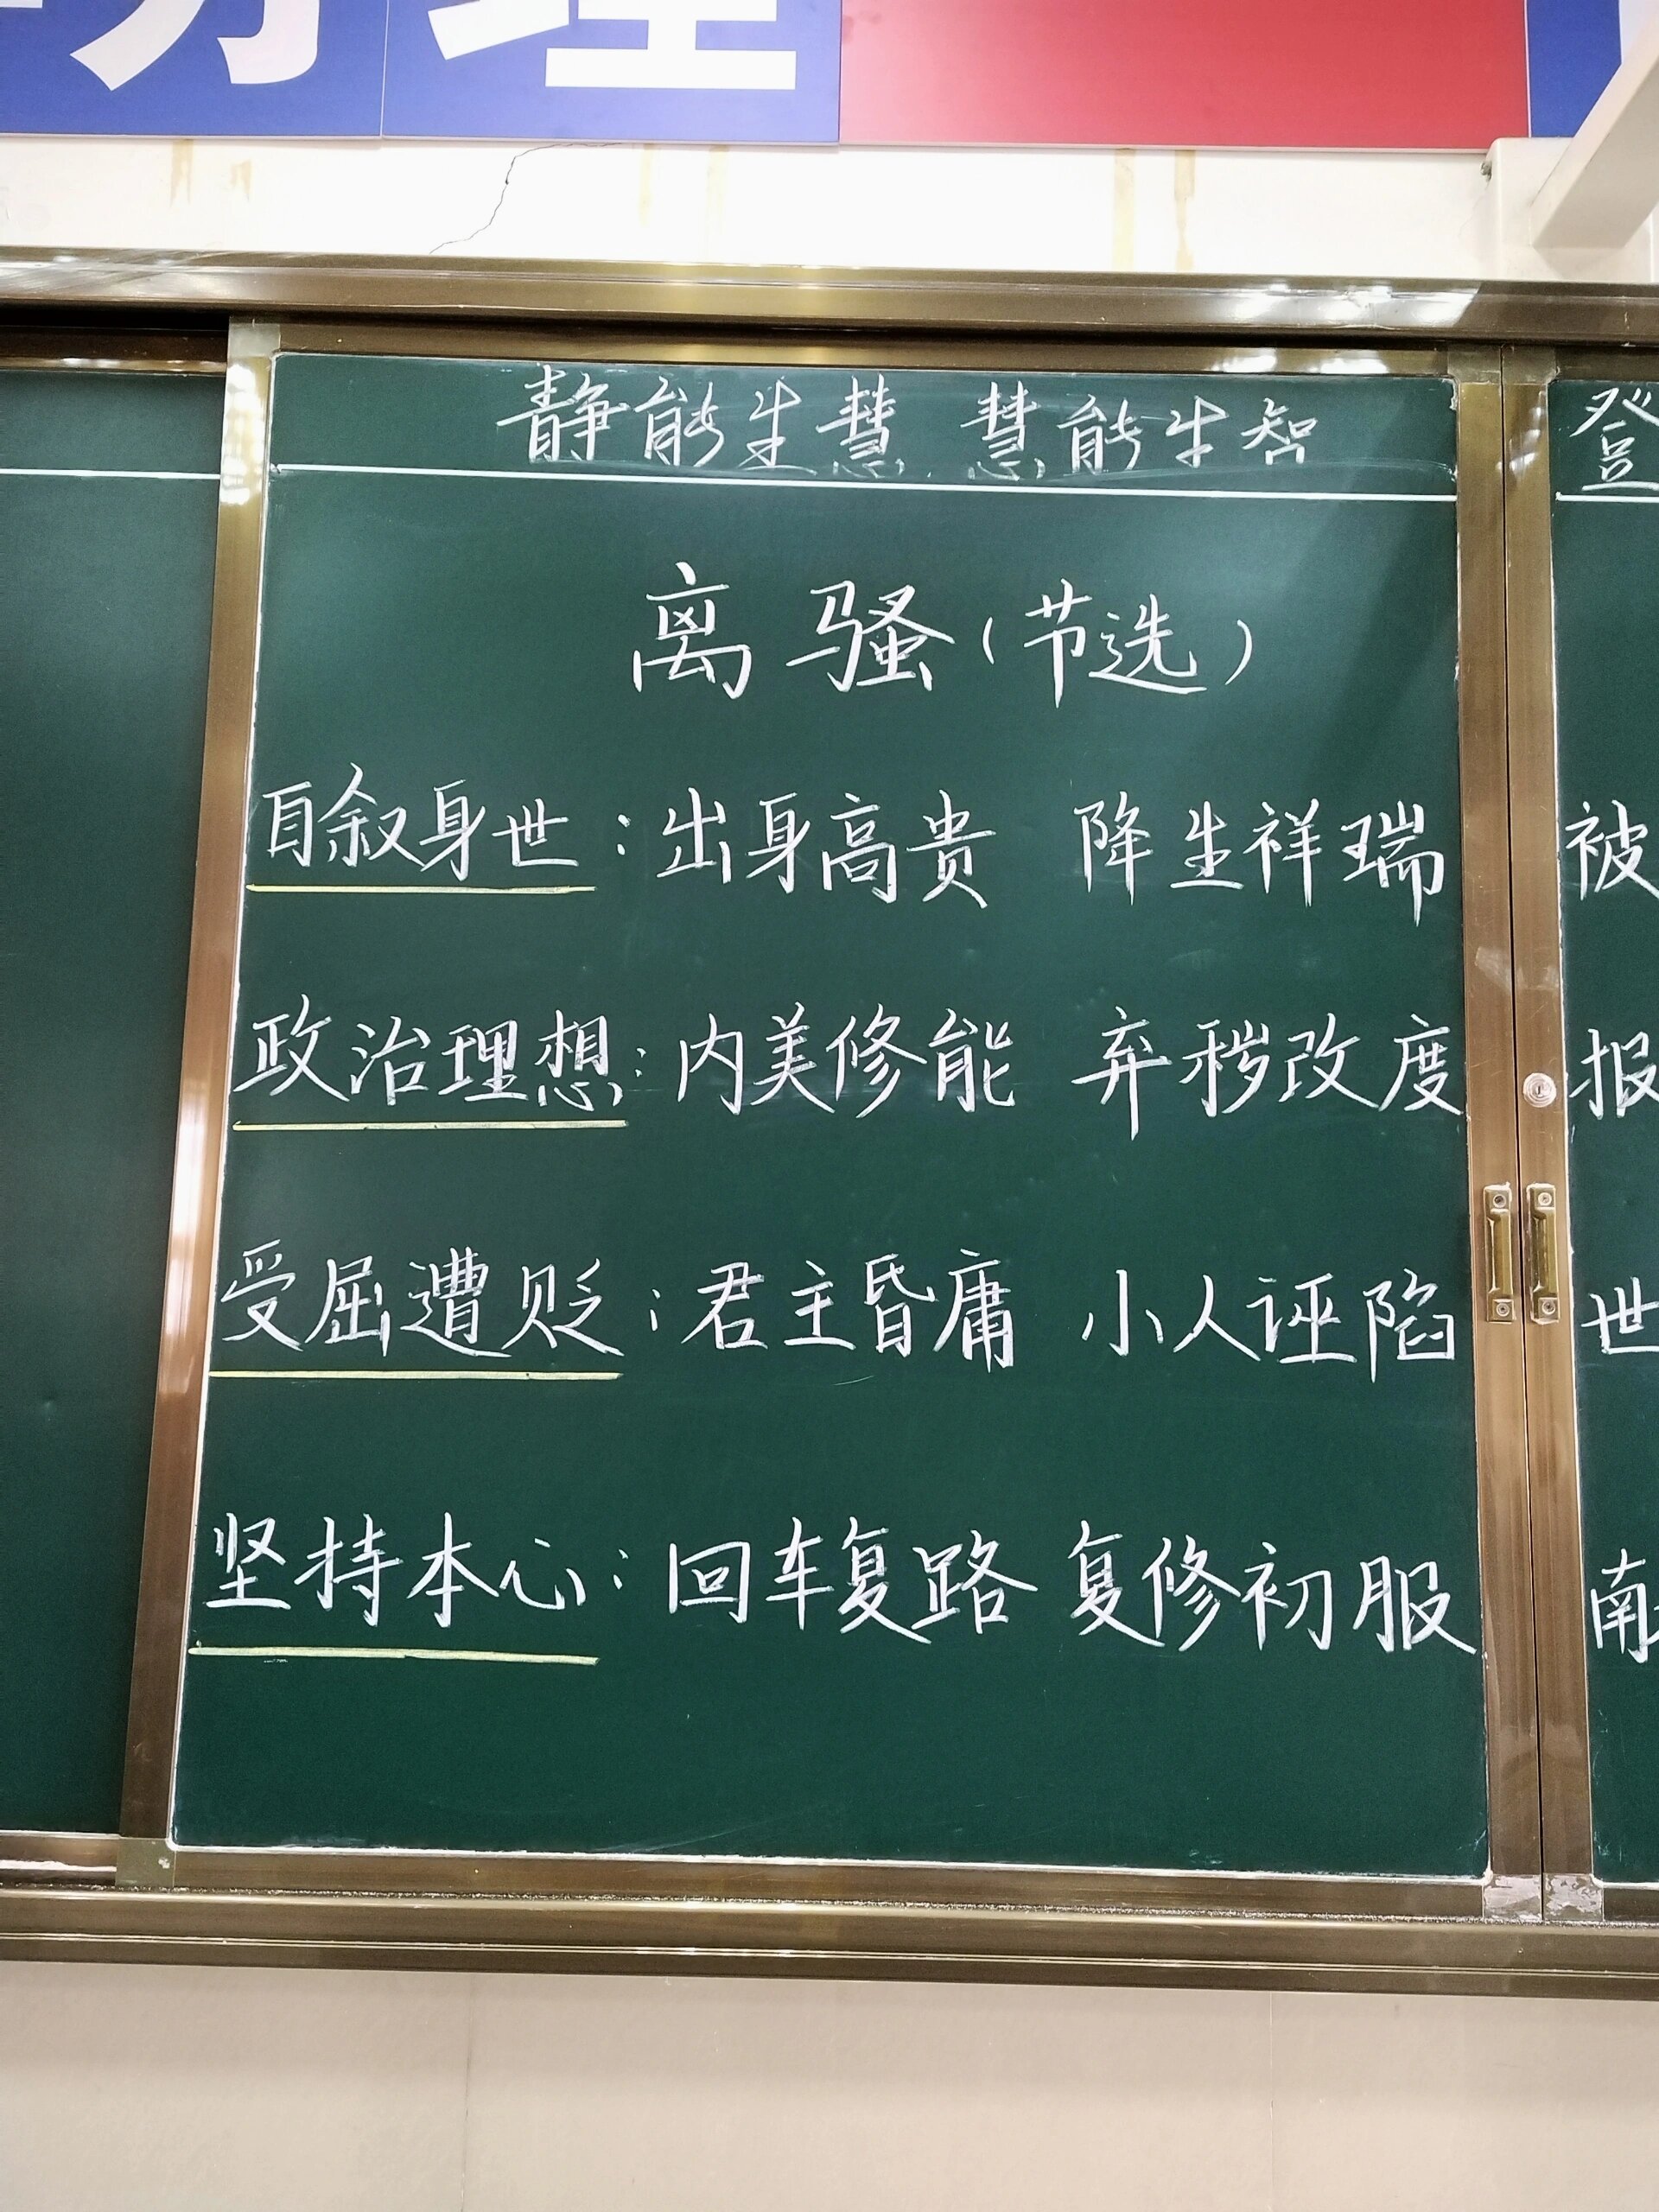 理
静能生慧 慧能生智
登
离骚（节选）
自叙身世：出身高贵 降生祥瑞
被
政治理想：内美修能 弃秽改度
报
受屈遭贬：君主昏庸 小人诬陷
世
坚持本心：回车复路 复修初服
南